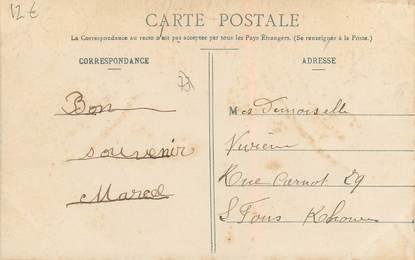 12 €
CARTE POSTALE
La Correspondance au recto n'est pas acceptée par tous les Pays Étrangers. (Se renseigner à la Poste.)
CORRESPONDANCE
ADRESSE
Bon
souvenir
Marcel
Mes Demoiselle
Vivien
Rue Carnot 29
St Fons Rhone